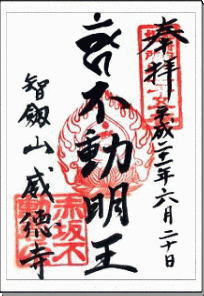 奉拝
平成二十一年六月二十日
不動明王
智劔山 威徳寺
赤坂不動尊